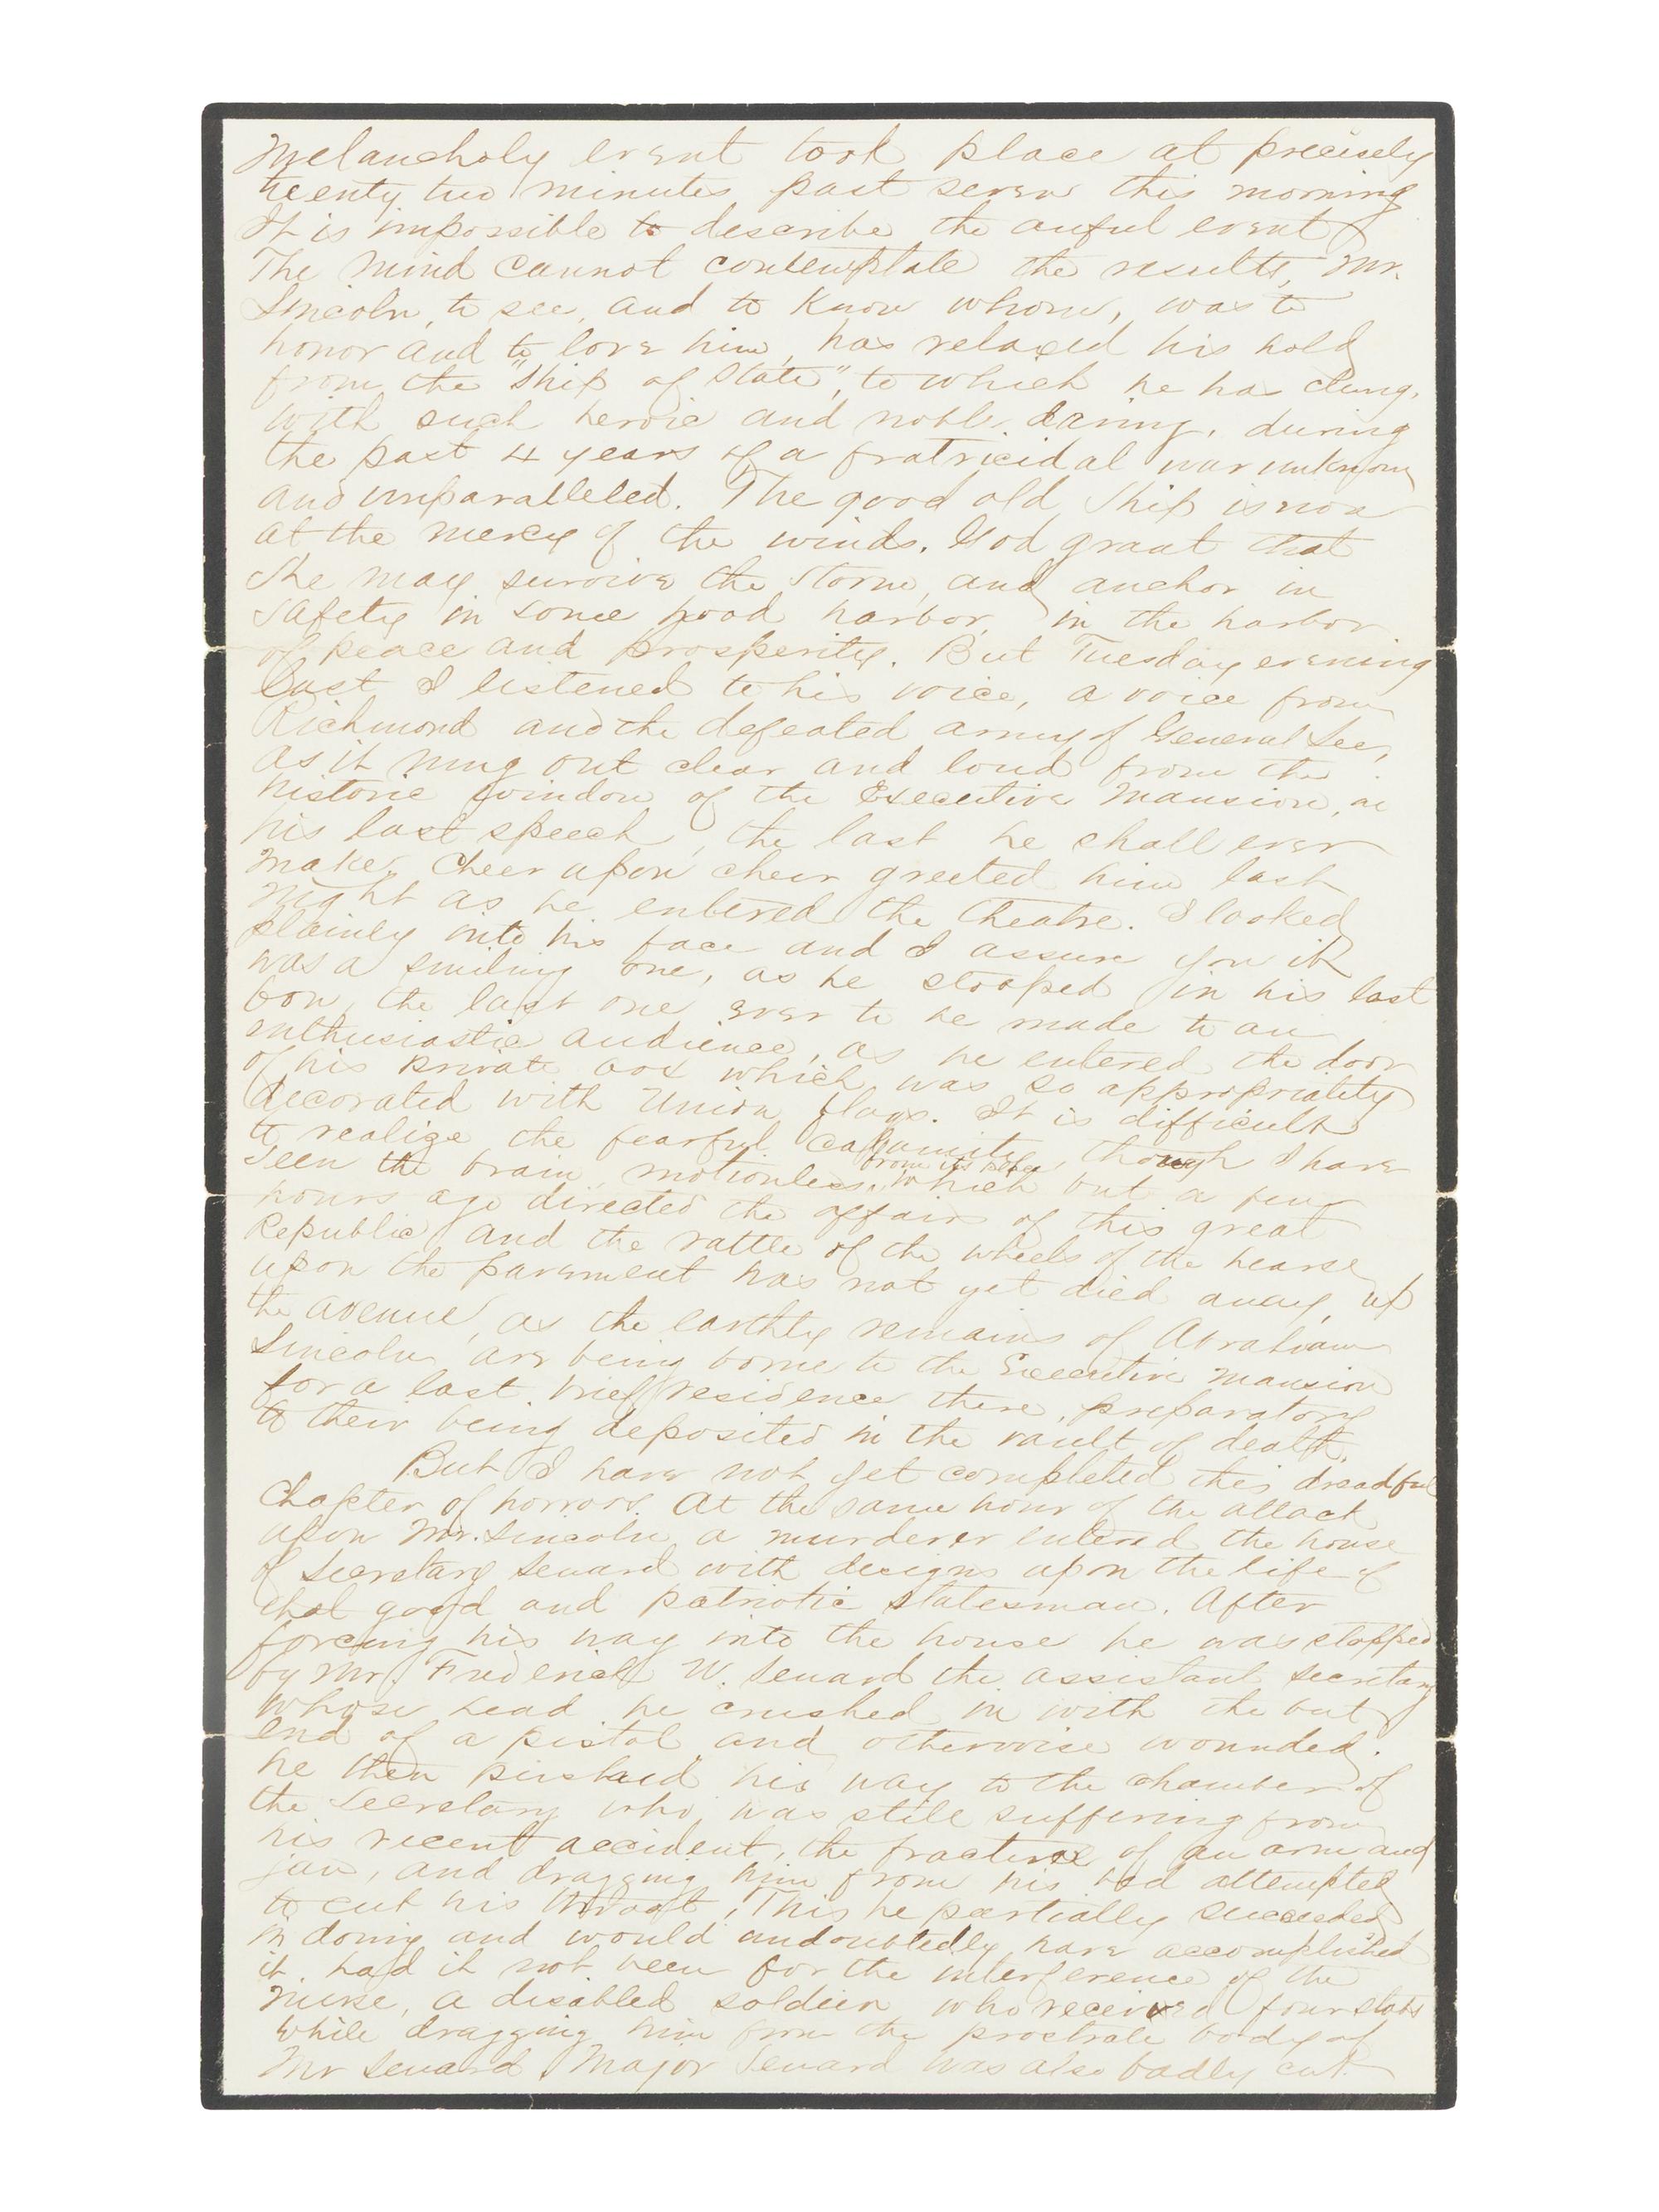 Melancholy event took place at precisely
twenty two minutes past seven this morning
It is impossible to describe the awful event
The mind cannot contemplate the results, Mr.
Lincoln, to see, and to know whom, was to
honor and to love him, has relaxed his hold
from the "Ship of State", to which he has clung,
with such heroic and noble daring, during
the past 4 years of a fratricidal war unknown
and unparalleled. The good old Ship is now
at the mercy of the winds. God grant that
she may survive the storm, and anchor in
safety in some good harbor, in the harbor
of peace and prosperity. But Tuesday evening
last I listened to his voice, a voice from
Richmond and the defeated army of General Lee,
as it rung out clear and loud from the
historic window of the Executive Mansion, in
his last speech, the last he shall ever
make. Cheer upon cheer greeted him last
night as he entered the theatre. I looked
plainly into his face and I assure you it
was a smiling one, as he stooped in his last
bow, the last one ever to be made to an
enthusiastic audience, as he entered the door
of his private box which was so appropriately
decorated with Union flags. It is difficult
to realize the fearful calamity, though I have
seen the brain, motionless, from its which but a few
hours ago directed the affairs of this great
Republic and the rattle of the wheels of the hearse
upon the pavement has not yet died away, up
the avenue, as the earthly remains of Abraham
Lincoln are being borne to the Executive Mansion
for a last brief residence there, preparatory
to their being deposited in the vault of death.
But I have not yet completed this dreadful
Chapter of horrors. At the same hour of the attack
upon Mr. Lincoln a murderer entered the house
of Secretary Seward with designs upon the life of
that good and patriotic statesman. After
forceing his way into the house he was stopped
by Mr. Frederick W. Seward the assistant secretary
whose head he crushed in with the but
end of a pistol and otherwise wounded.
he then his way to the chamber of
the Secretary who was still suffering from
his recent accident, the fracture of an arm and
jaw, and dragging him from his bed attempted
to cut his throat, This he partially succeeded
in doing and would undoubtedly have accomplished
it, had it not been for the interference of the
nurse, a disabled soldier who received four stabs
while dragging him from the prostrate body of
Mr Seward Major Seward was also badly cut.